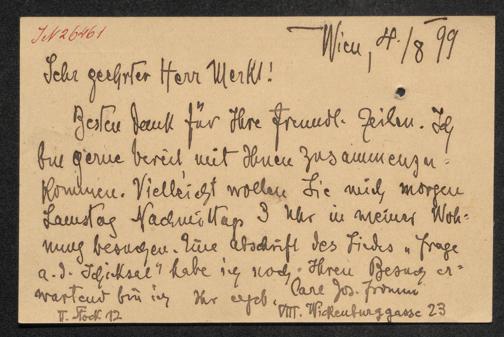 JN 26461
Wien, 4./8 99
Sehr geehrter Herr Merkt!
Besten Dank für Ihre freundl. Zeilen. Ich
bin gerne bereit mit Ihnen zusammenzu-
kommen. Vielleicht wollen Sie mich morgen
Samstag Nachmittags 3 Uhr in meiner Woh-
nung besuchen. Eine Abschrift des Liedes „Frage
a. d. Schicksal" habe ich noch. Ihren Besuch er-
wartend bin ich Ihr ergeb. Carl Jos. Fromm
II. Stock 12 VIII. Wickenburggasse 23